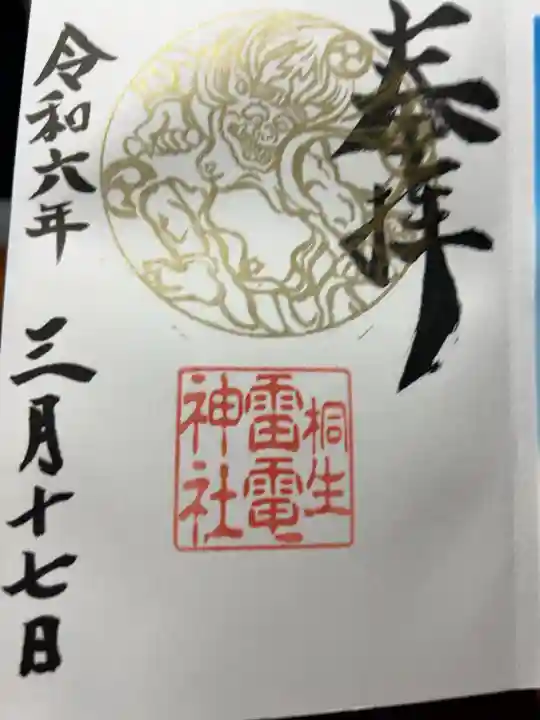 奉拝
桐生
雷電
神社
令和六年 三月十七日